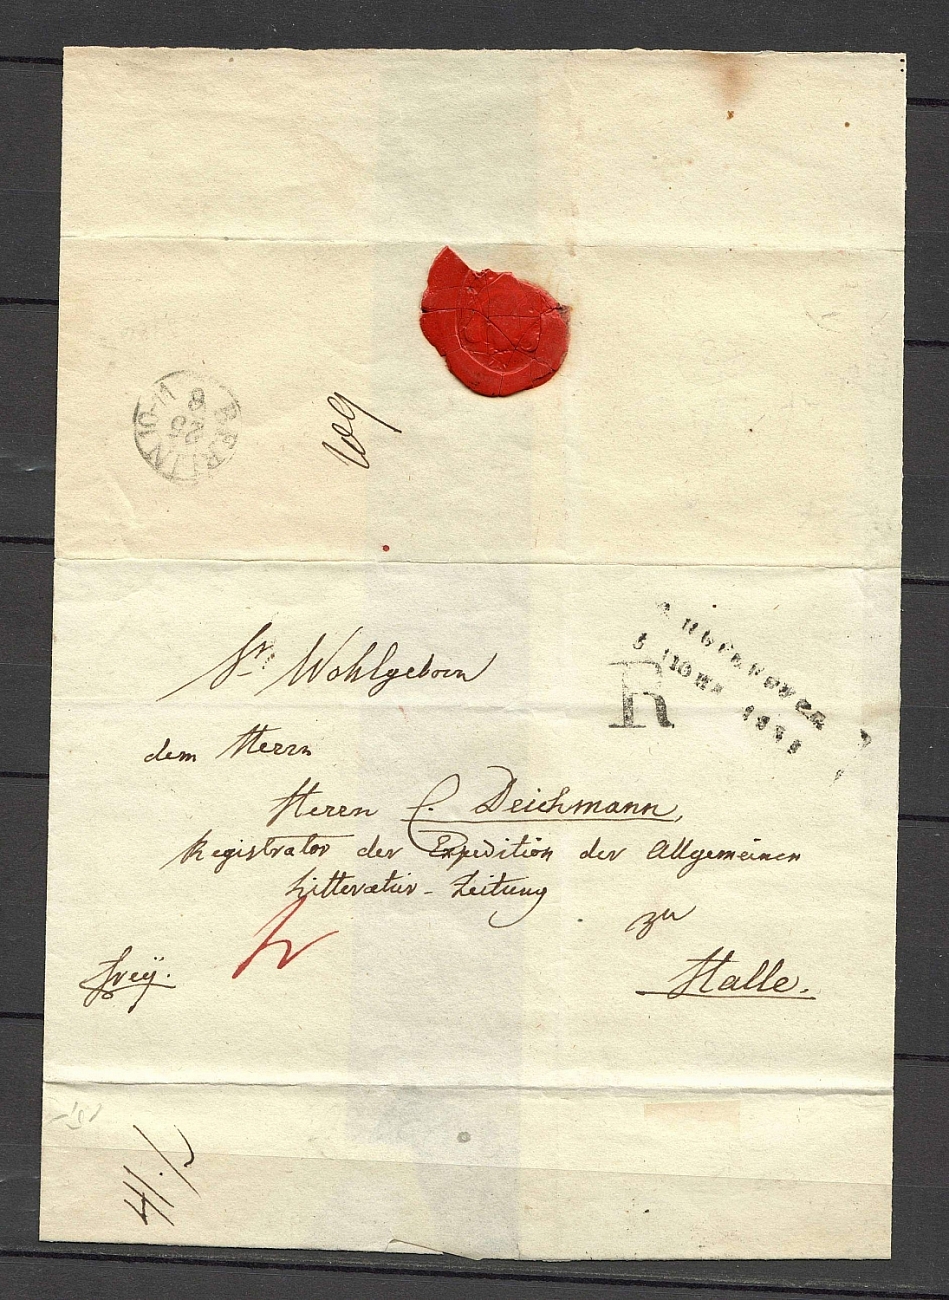 BERLIN 10-11
25
8
R
Sr. Wohlgeborn
dem Herrn
Herrn C. Deichmann,
Registrator der Expedition der Allgemeinen
Litteratur-Zeitung
zu
Halle.
frey.